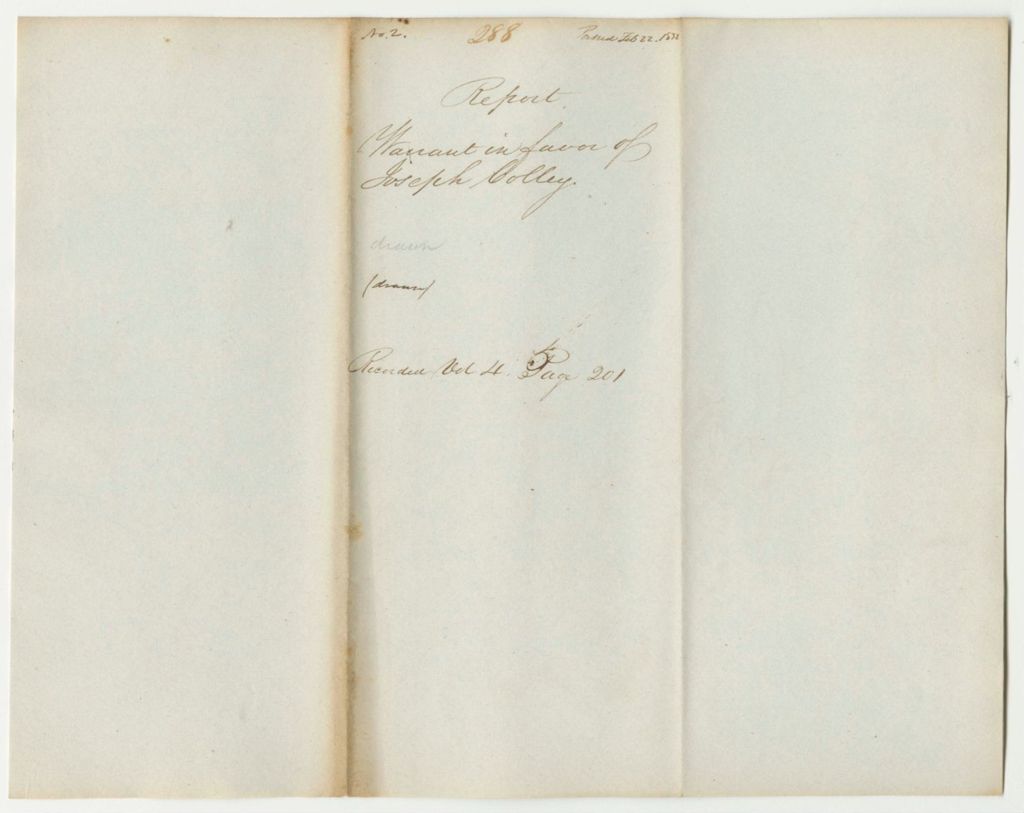 No. 2. 288 Passed Feb 22. 1832
Report.
Warrant in favor of
Joseph Colley.
drawn
(drawn)
Recorded Vol 4. Page 201